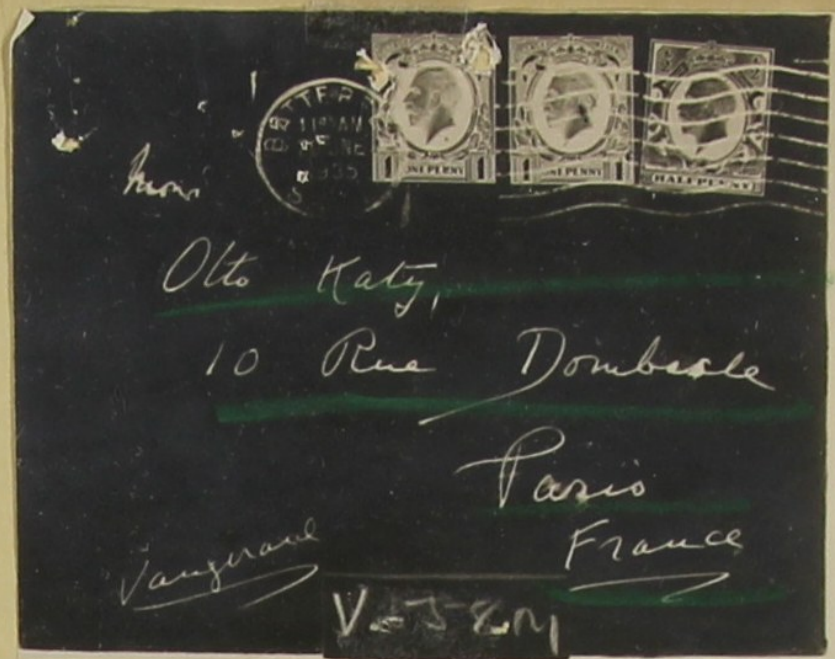 BATTER
11 AM
1935
ONE PENNY
ONE PENNY
HALFPENNY
Mons
Otto Katy,
10 Rue Dombasle
Paris
France
Vangirard